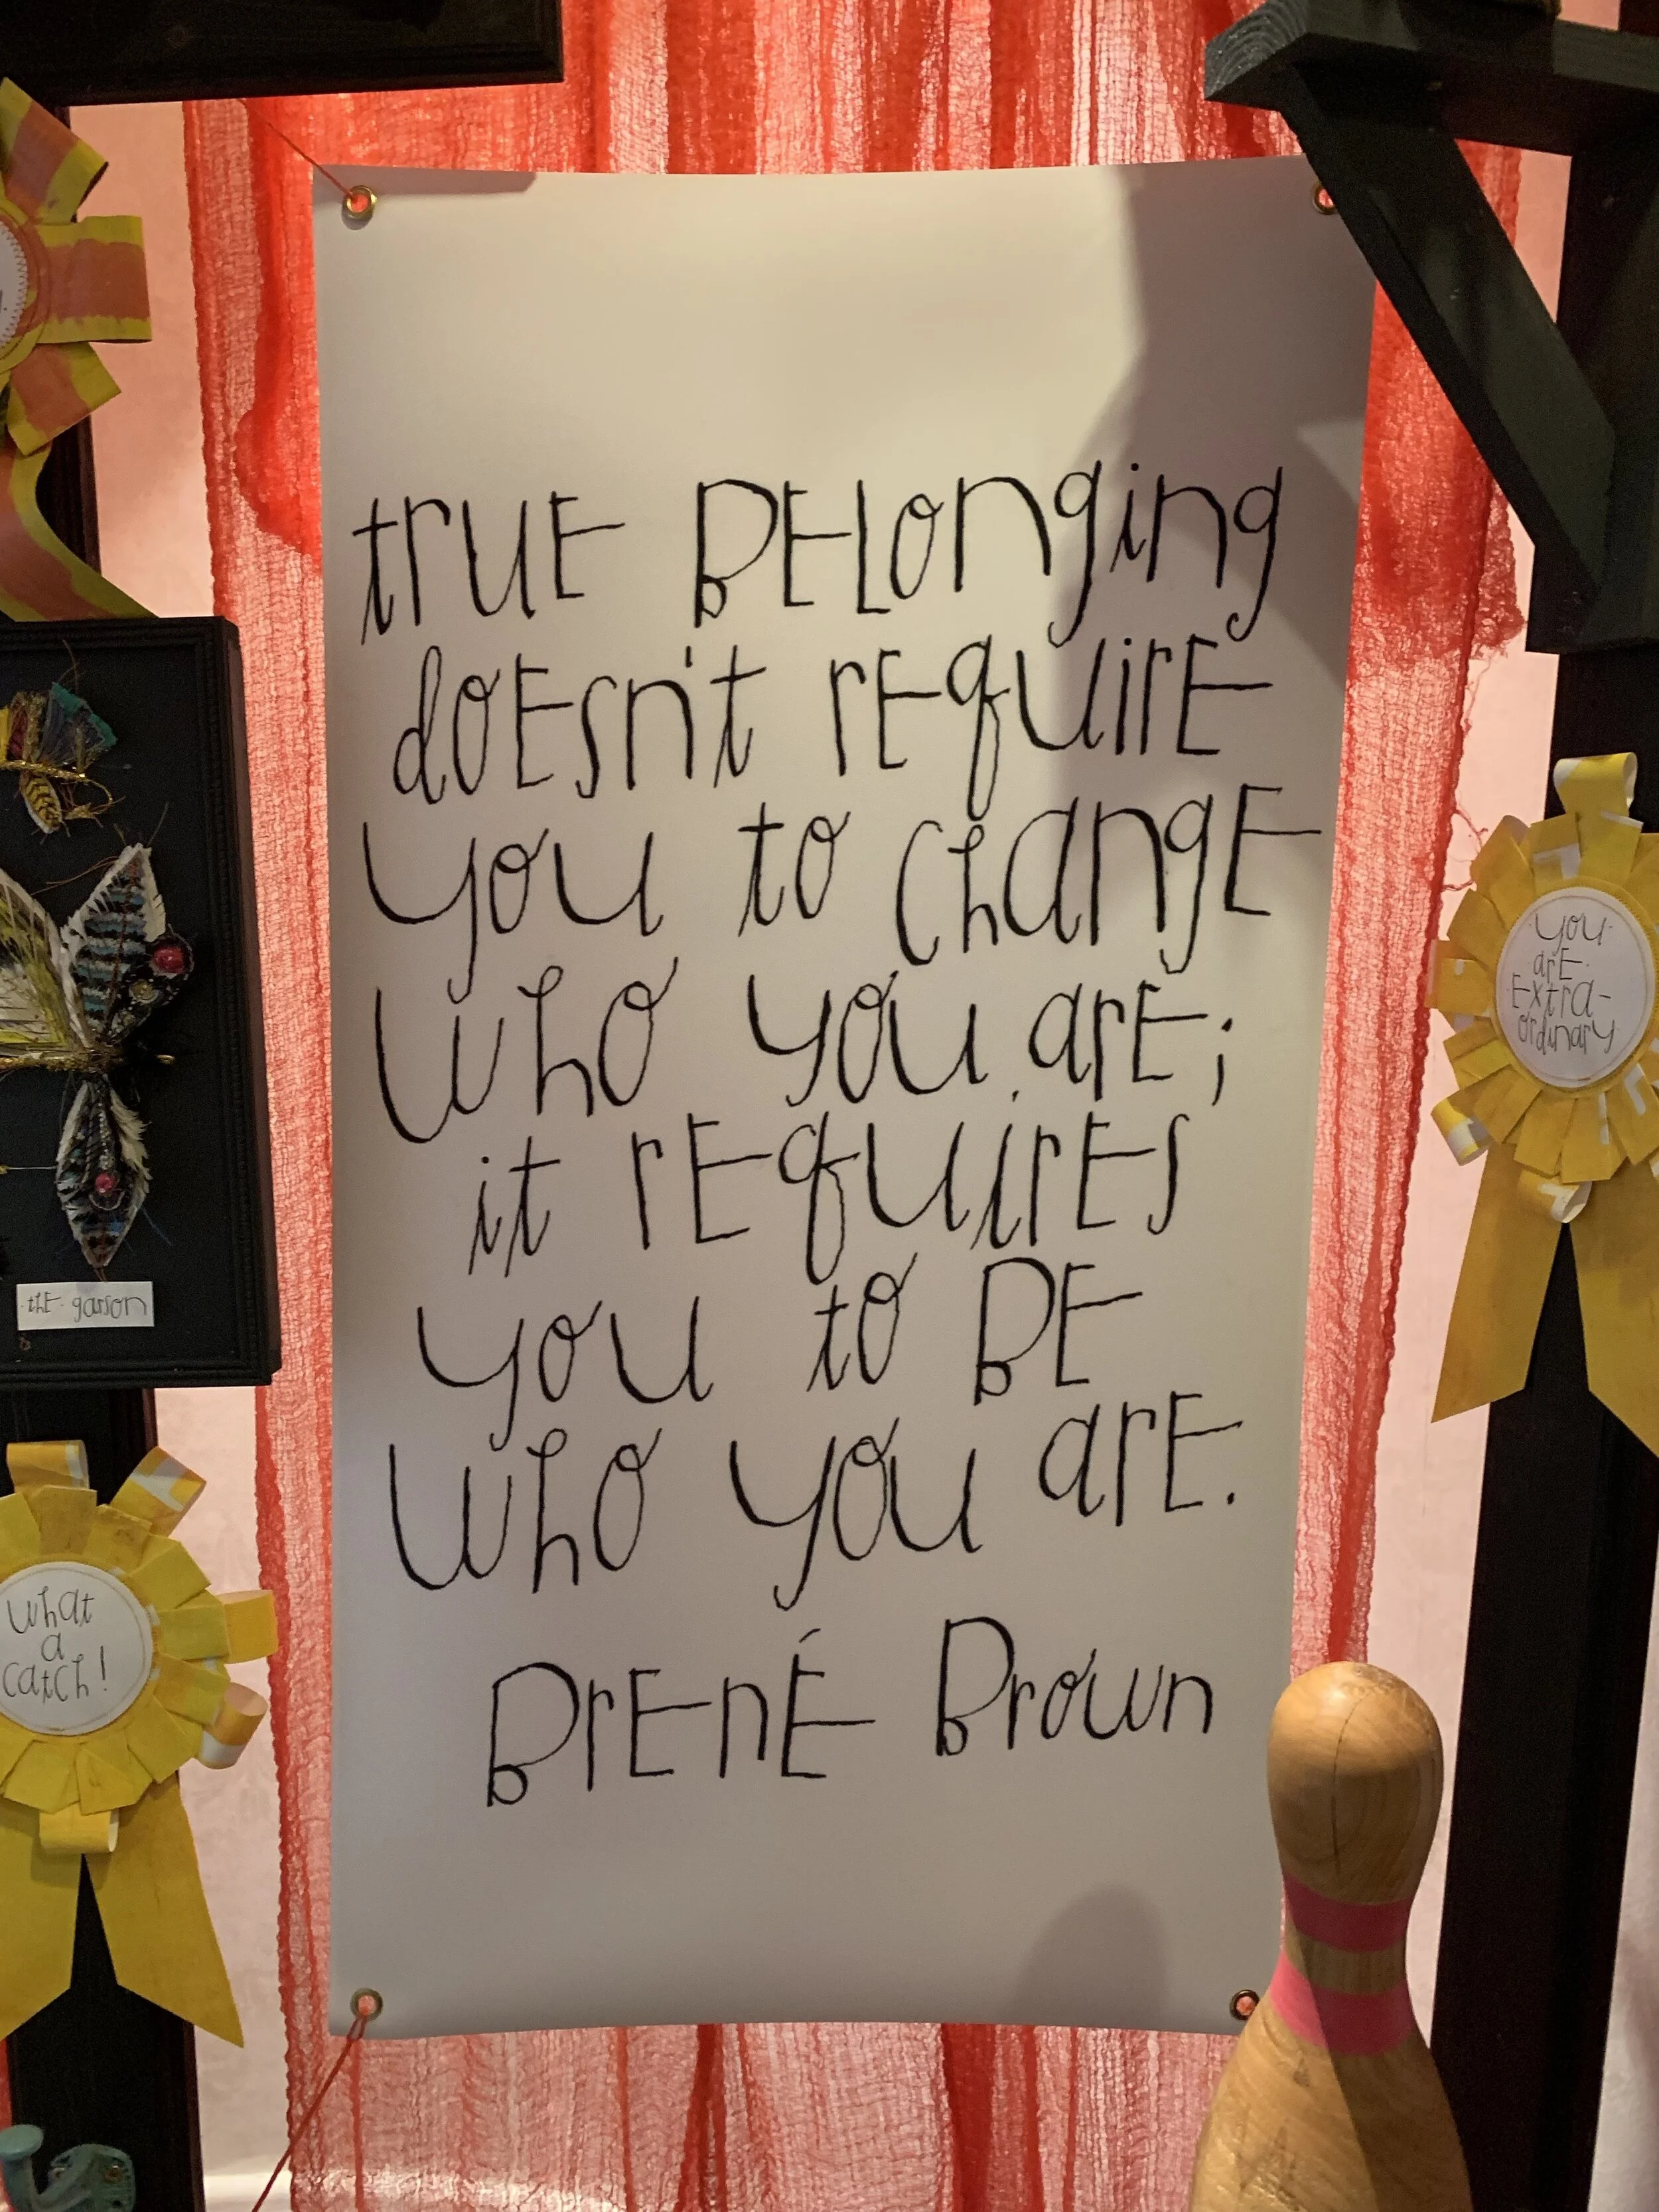 true belonging
doesn't require
you to change
who you are;
it requires
you to be
who you are.
Brené Brown
you
are
extra-
ordinary
the garson
what
a
catch!